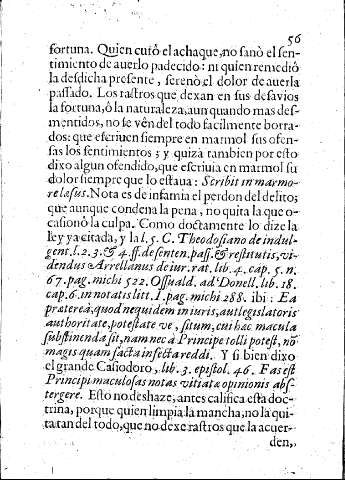 56
fortuna. Quien curò el achaque, no sanò el sen-
timiento de auerlo padecido: ni quien remediò
la desdicha presente, serenò el dolor de auerla
passado. Los rastros que dexan en sus desavios
la fortuna, ò la naturaleza, aun quando mas des-
mentidos, no se vèn del todo facilmente borra-
dos: que escriuen siempre en marmol sus ofen-
sas los sentimientos; y quizà tambien por esto
dixo algun ofendido, que escriuia en marmol su
dolor siempre que lo estaua: Scribit in marmo-
re læsus. Nota es de infamia el perdon del delito;
que aunque condena la pena, no quita la que o-
casionò la culpa. Como doctamente lo dize la
ley ya citada, y la l. 5. C. Theodosiano de indul-
gent. l. 2. 3. & 4. ff. de senten. pass. & restitutis, vi-
dendus Arrellanus de iur. rat. lib. 4. cap. 5. n.
67. pag. michi 522. Osuald. ad Donell. lib. 18.
cap. 6. in notatis litt. I. pag. michi 288. ibi: Ea
præterea, quod nequidem in iuris, aut legislatoris
authoritate, potestate ve, situm, cui hac macula
substinenda sit, nam nec à Principe tolli potest, nō
magis quam facta infecta reddi. Y si bien dixo
el grande Casiodoro, lib. 3. epistol. 46. Fas est
Principi maculosas notas vitiatæ opinionis abs-
tergere. Esto no deshaze, antes califica esta doc-
trina, porque quien limpia la mancha, no la qui-
ta tan del todo, que no dexe rastros que la acuer-
den,